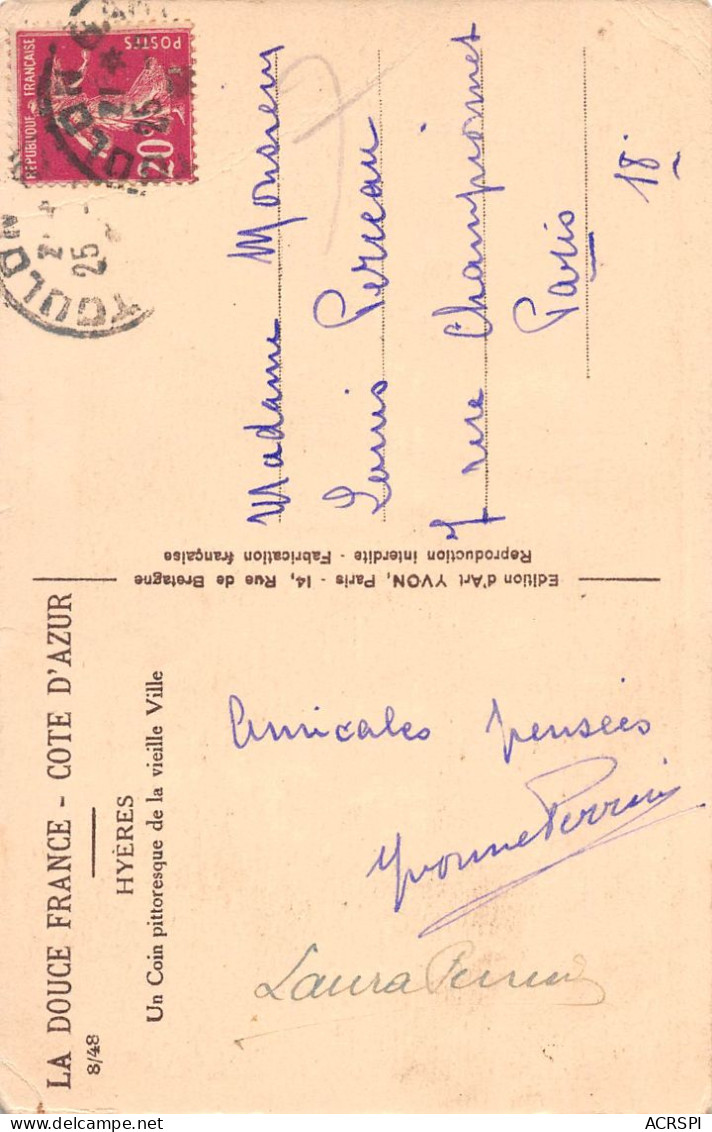 LA DOUCE FRANCE - COTE D'AZUR
8/48
HYÈRES
Un Coin pittoresque de la vieille Ville
Amicales pensées
Yvonne Perrin
Laura
Edition d'Art YVON, Paris - 14, Rue de Bretagne
Reproduction interdite - Fabrication française
REPUBLIQUE FRANÇAISE
POSTES
20
TOULON
25
Madame Monsieur
Louis Perceau
rue Championnet
Paris
18
ACRSPI